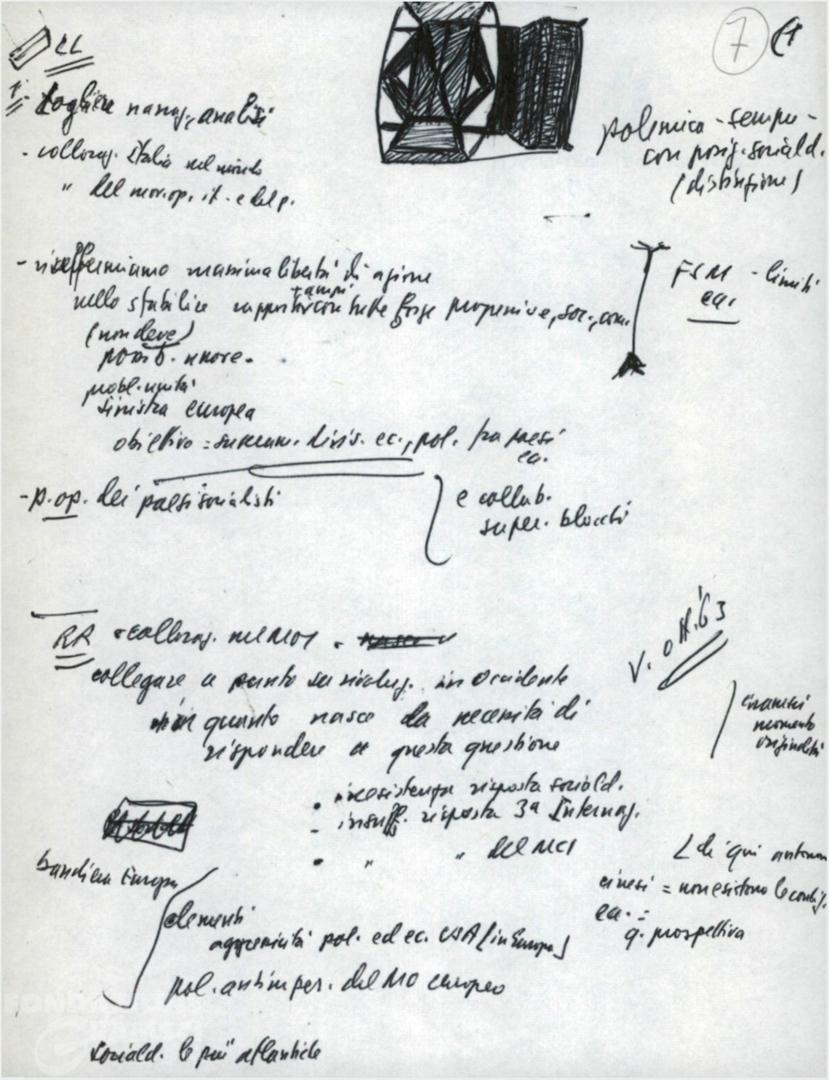 7
LL
1. togliere nanag. analisi
- collocaz. Italia nel mondo
" del mov. op. it. e del p.
polemica - sempre -
con posiz. sociald.
(distinzione)
- riaffermiamo massima libertà di azione
nello stabilire rapporti con tutte forze progressive, soc., com.
(non deve)
FSM - limiti
ecc.
probl. unità
sinistra europea
obiettivo = superam. divis. ec., pol. fra paesi
ecc.
- p. op. dei paesi socialisti
e collab.
super. blocchi
RR • collocaz. nel MOI.
collegare a punto su rivoluz. in occidente
in quanto nasce da necessità di
rispondere a questa questione
V. OK 63
momento
originalità
• inesistenza risposta sociald.
- insuff. risposta 3ª Internaz.
• " " del MCI
di qui autonom
cinesi = non esistono le condiz.
ecc. =
q. prospettiva
bandiera Europa
elementi
aggressività pol. ed ec. USA (in Europa)
pol. antimper. del MO europeo
sociald. le più atlantiche